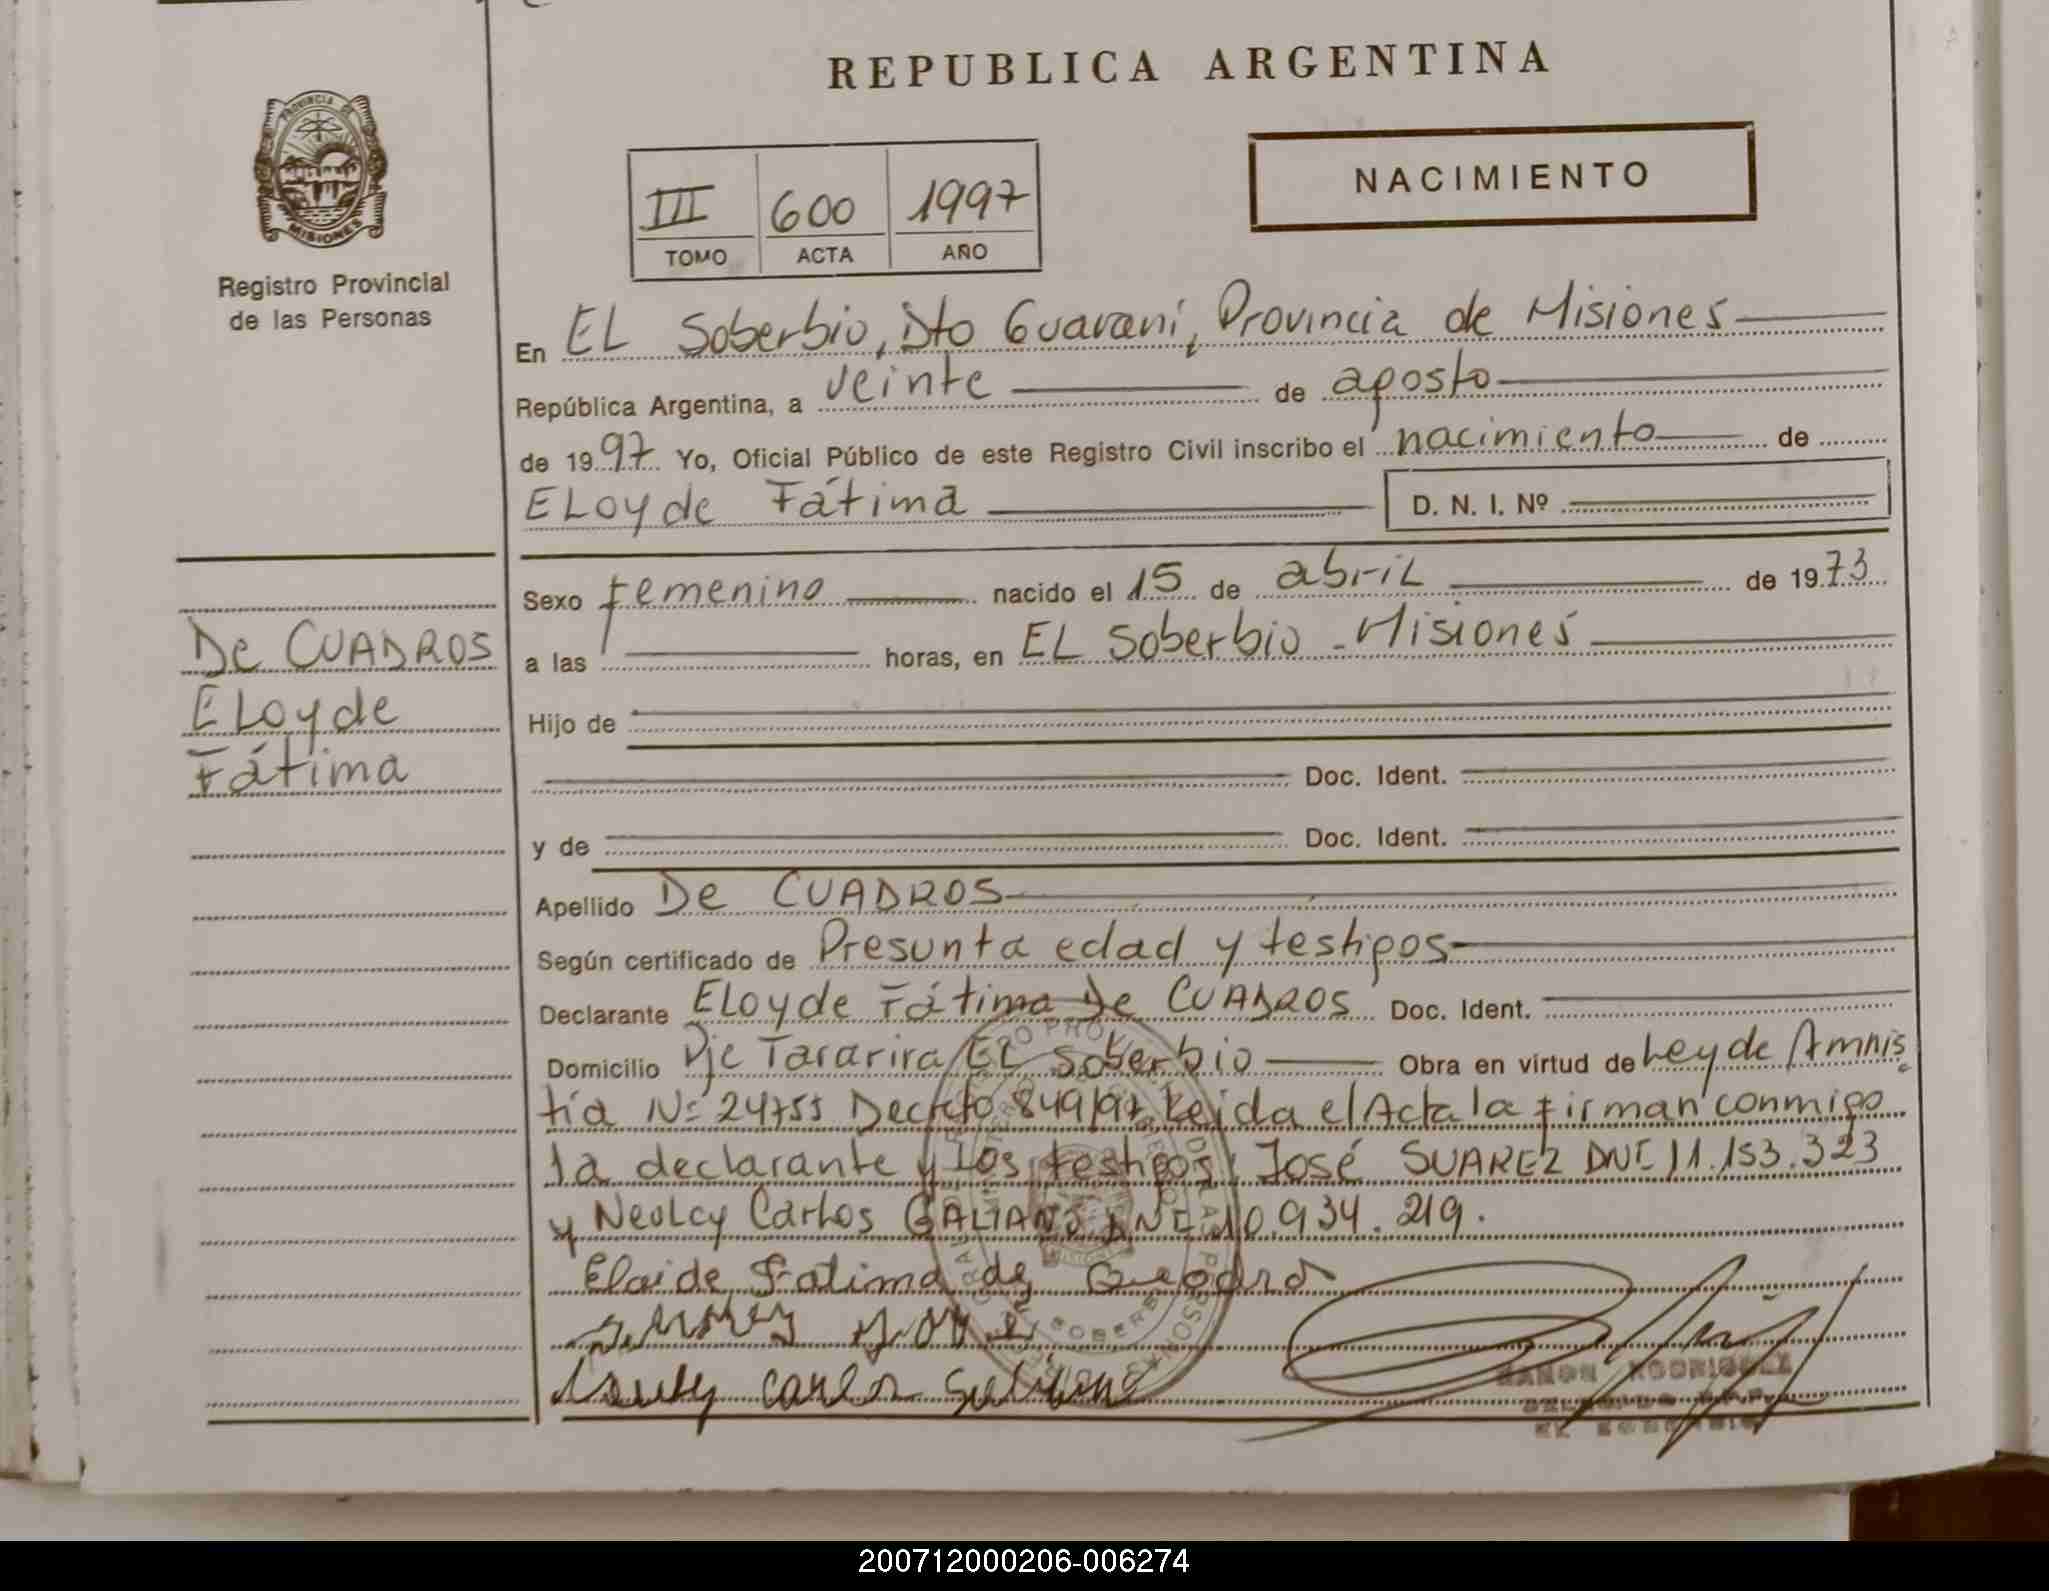 REPUBLICA ARGENTINA
PROVINCIA DE
MISIONES
Registro Provincial
de las Personas
III 600 1997
TOMO ACTA AÑO
NACIMIENTO
En EL Soberbio, Dto Guaraní, Provincia de Misiones
República Argentina, a veinte de agosto
de 1997 Yo, Oficial Público de este Registro Civil inscribo el nacimiento de
ELoyde Fátima D. N. I. Nº
De CUADROS
ELoyde
Fátima
Sexo femenino nacido el 15 de abriL de 1973
a las horas, en EL Soberbio - Misiones
Hijo de
Doc. Ident.
y de Doc. Ident.
Apellido De CUADROS
Según certificado de Presunta edad y testigos
Declarante ELoyde Fátima De CUADROS Doc. Ident.
Domicilio Pje Tararira EL Soberbio Obra en virtud de Ley de Amnis
tía Nº 24755 Decreto 849/97 Leida el Acta la firman conmigo
la declarante y los testigos: José SUAREZ DNI 11.153.323
y NeoLcy Carlos GALIANO DNI 10.934.219.
Eloide Fatima de
Carlos
RAMON RODRIGUEZ
EL SOBERBIO
200712000206-006274